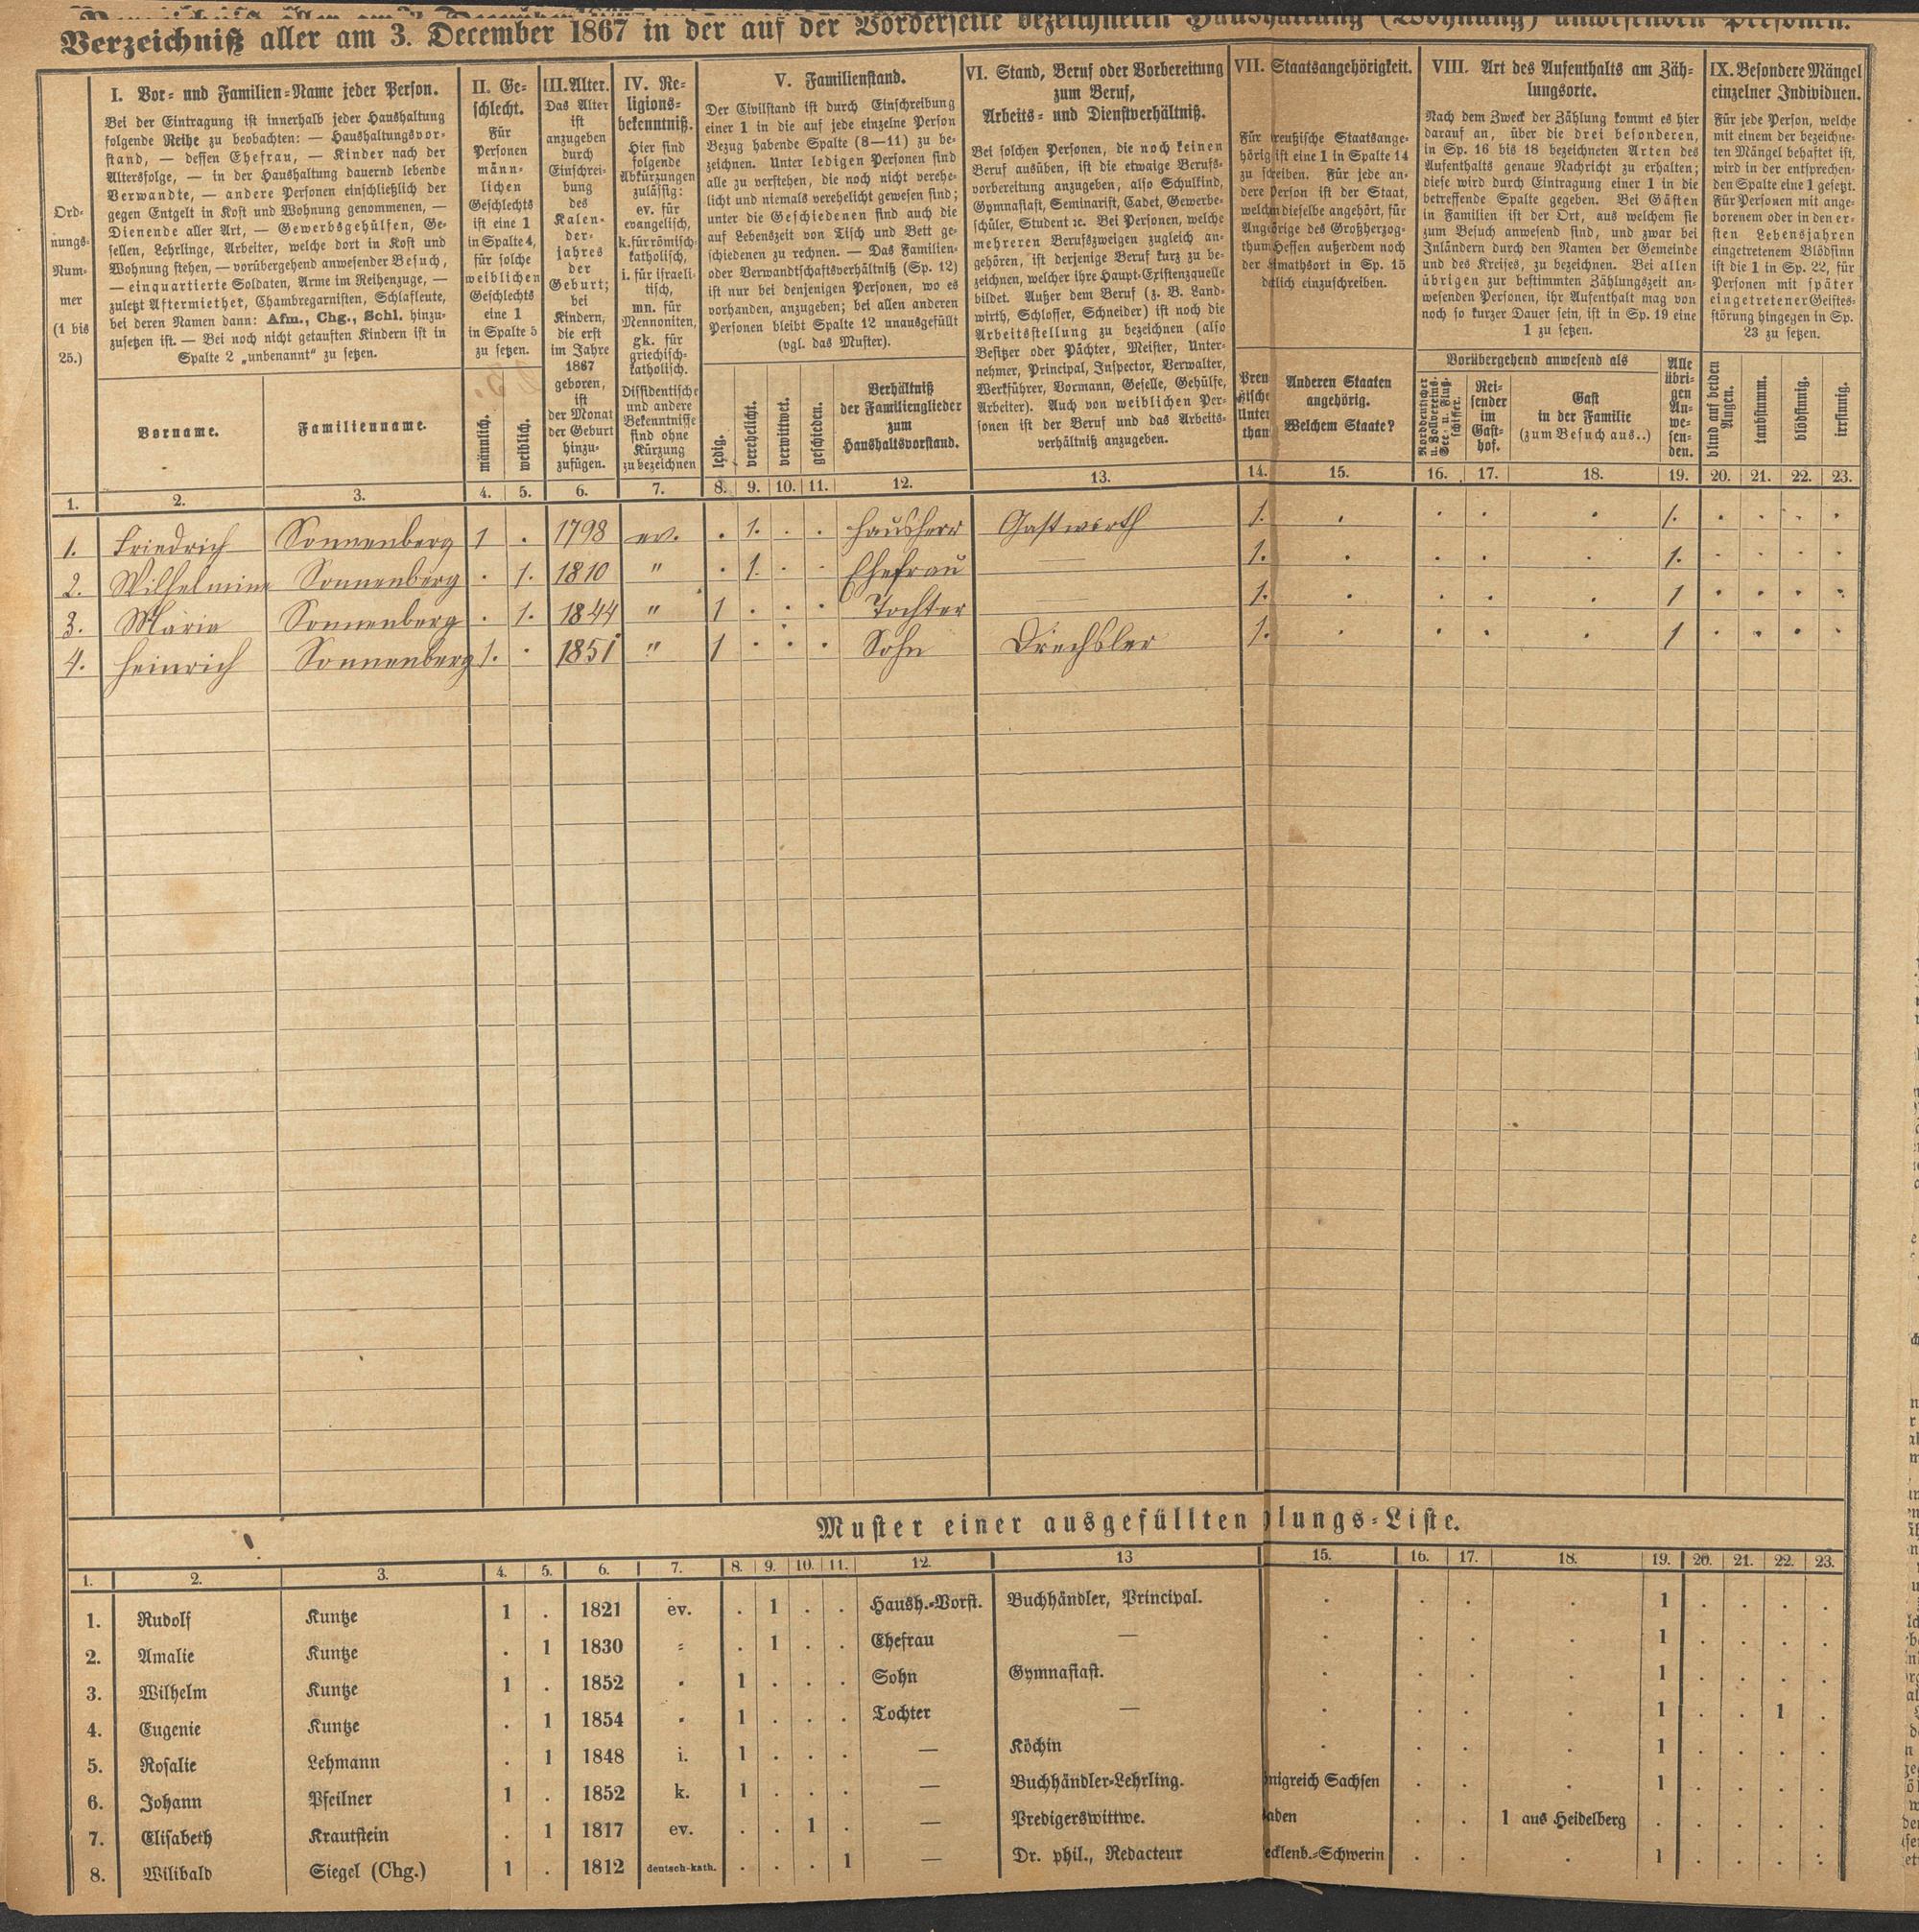 Verzeichniß aller am 3. December 1867 in der auf der Vorderseite bezeichneten Haushaltung (Wohnung) anwesenden Personen.
Ord-
nungs-
Num-
mer
(1 bis
25.)
I. Vor- und Familien-Name jeder Person.
Bei der Eintragung ist innerhalb jeder Haushaltung
folgende Reihe zu beobachten: — Haushaltungsvor-
stand, — dessen Ehefrau, — Kinder nach der
Altersfolge, — in der Haushaltung dauernd lebende
Verwandte, — andere Personen einschließlich der
gegen Entgelt in Kost und Wohnung genommenen, —
Dienende aller Art, — Gewerbsgehülfen, Ge-
sellen, Lehrlinge, Arbeiter, welche dort in Kost und
Wohnung stehen, — vorübergehend anwesender Besuch,
— einquartierte Soldaten, Arme im Reihenzuge, —
zuletzt Aftermiether, Chambregarnisten, Schlafleute,
bei deren Namen dann: Afm., Chg., Schl. hinzu-
zusetzen ist. — Bei noch nicht getauften Kindern ist in
Spalte 2 „unbenannt“ zu setzen.
Vorname.
Familienname.
II. Ge-
schlecht.
Für
Personen
männ-
lichen
Geschlechts
ist eine 1
in Spalte 4,
für solche
weiblichen
Geschlechts
eine 1
in Spalte 5
zu setzen.
männlich.
weiblich.
III. Alter.
Das Alter
ist
anzugeben
durch
Einschrei-
bung
des
Kalen-
der-
jahres
der
Geburt;
bei
Kindern,
die erst
im Jahre
1867
geboren,
ist
der Monat
der Geburt
hinzu-
zufügen.
IV. Re-
ligions-
bekenntniß.
Hier sind
folgende
Abkürzungen
zulässig:
ev. für
evangelisch,
k. für römisch-
katholisch,
i. für israeli-
tisch,
mn. für
Mennoniten,
gk. für
griechisch-
katholisch.
Dissidentische
und andere
Bekenntnisse
sind ohne
Kürzung
zu bezeichnen
V. Familienstand.
Der Civilstand ist durch Einschreibung
einer 1 in die auf jede einzelne Person
Bezug habende Spalte (8—11) zu be-
zeichnen. Unter ledigen Personen sind
alle zu verstehen, die noch nicht verehe-
licht und niemals verehelicht gewesen sind;
unter die Geschiedenen sind auch die
auf Lebenszeit von Tisch und Bett ge-
schiedenen zu rechnen. — Das Familien-
oder Verwandtschaftsverhältniß (Sp. 12)
ist nur bei denjenigen Personen, wo es
vorhanden, anzugeben; bei allen anderen
Personen bleibt Spalte 12 unausgefüllt
(vgl. das Muster).
ledig.
verehelicht.
verwittwet.
geschieden.
Verhältniß
der Familienglieder
zum
Haushaltsvorstand.
VI. Stand, Beruf oder Vorbereitung
zum Beruf,
Arbeits- und Dienstverhältniß.
Bei solchen Personen, die noch keinen
Beruf ausüben, ist die etwaige Berufs-
vorbereitung anzugeben, also Schulkind,
Gymnasiast, Seminarist, Cadet, Gewerbe-
schüler, Student ꝛc. Bei Personen, welche
mehreren Berufszweigen zugleich an-
gehören, ist derjenige Beruf kurz zu be-
zeichnen, welcher ihre Haupt-Existenzquelle
bildet. Außer dem Beruf (z. B. Land-
wirth, Schlosser, Schneider) ist noch die
Arbeitsstellung zu bezeichnen (also
Besitzer oder Pächter, Meister, Unter-
nehmer, Principal, Inspector, Verwalter,
Werkführer, Vormann, Geselle, Gehülfe,
Arbeiter). Auch von weiblichen Per-
sonen ist der Beruf und das Arbeits-
verhältniß anzugeben.
VII. Staatsangehörigkeit.
Für reußische Staatsange-
hörig ist eine 1 in Spalte 14
zu schreiben. Für jede an-
dere Person ist der Staat,
welchem dieselbe angehört, für
Angehörige des Großherzog-
thum Hessen außerdem noch
der imathsort in Sp. 15
dtlich einzuschreiben.
Preu
ßische
Unter
than
Anderen Staaten
angehörig.
Welchem Staate?
VIII. Art des Aufenthalts am Zäh-
lungsorte.
Nach dem Zweck der Zählung kommt es hier
darauf an, über die drei besonderen,
in Sp. 16 bis 18 bezeichneten Arten des
Aufenthalts genaue Nachricht zu erhalten;
diese wird durch Eintragung einer 1 in die
betreffende Spalte gegeben. Bei Gästen
in Familien ist der Ort, aus welchem sie
zum Besuch anwesend sind, und zwar bei
Inländern durch den Namen der Gemeinde
und des Kreises, zu bezeichnen. Bei allen
übrigen zur bestimmten Zählungszeit an-
wesenden Personen, ihr Aufenthalt mag von
noch so kurzer Dauer sein, ist in Sp. 19 eine
1 zu setzen.
Vorübergehend anwesend als
Norddeutscher
u. Zollvereins-
See- u. Fluß-
schiffer.
Rei-
sender
im
Gast-
hof.
Gast
in der Familie
(zum Besuch aus..)
Alle
übri-
gen
An-
we-
sen-
den.
IX. Besondere Mängel
einzelner Individuen.
Für jede Person, welche
mit einem der bezeichne-
ten Mängel behaftet ist,
wird in der entsprechen-
den Spalte eine 1 gesetzt.
Für Personen mit ange-
borenem oder in den er-
sten Lebensjahren
eingetretenem Blödsinn
ist die 1 in Sp. 22, für
Personen mit später
eingetretener Geistes-
störung hingegen in Sp.
23 zu setzen.
blind auf beiden
Augen.
taubstumm.
blödsinnig.
irrsinnig.
1. 2. 3. 4. 5. 6. 7. 8. 9. 10. 11. 12. 13. 14. 15. 16. 17. 18. 19. 20. 21. 22. 23.
1. Friedrich Sonnenberg 1 . 1798 ev. . 1. . . Hausherr Gastwirth 1. . . . . 1. . . . .
2. Wilhelmine Sonnenberg . 1. 1810 " . 1. . . Ehefrau — 1. . . . . 1. . . . .
3. Maria Sonnenberg . 1. 1844 " 1 . . . Tochter — 1. . . . . 1 . . . .
4. Heinrich Sonnenberg 1. . 1851 " 1 . . . Sohn Drechsler 1. . . . . 1 . . . .
Muster einer ausgefüllten lungs-Liste.
1. 2. 3. 4. 5. 6. 7. 8. 9. 10. 11. 12. 13 15. 16. 17. 18. 19. 20. 21. 22. 23.
1. Rudolf Kuntze 1 . 1821 ev. . 1 . . Haush.-Vorst. Buchhändler, Principal. . . . . 1 . . . .
2. Amalie Kuntze . 1 1830 = . 1 . . Ehefrau — . . . . 1 . . . .
3. Wilhelm Kuntze 1 . 1852 = 1 . . . Sohn Gymnasiast. . . . . 1 . . . .
4. Eugenie Kuntze . 1 1854 = 1 . . . Tochter — . . . . 1 . . 1 .
5. Rosalie Lehmann . 1 1848 i. 1 . . . — Köchin . . . . 1 . . . .
6. Johann Pfeilner 1 . 1852 k. 1 . . . — Buchhändler-Lehrling. nigreich Sachsen . . . 1 . . . .
7. Elisabeth Krautstein . 1 1817 ev. . . 1 . — Predigerswittwe. aden . . 1 aus Heidelberg . . . . .
8. Wilibald Siegel (Chg.) 1 . 1812 deutsch-kath. . . . 1 — Dr. phil., Redacteur ecklenb.-Schwerin . . . 1 . . . .